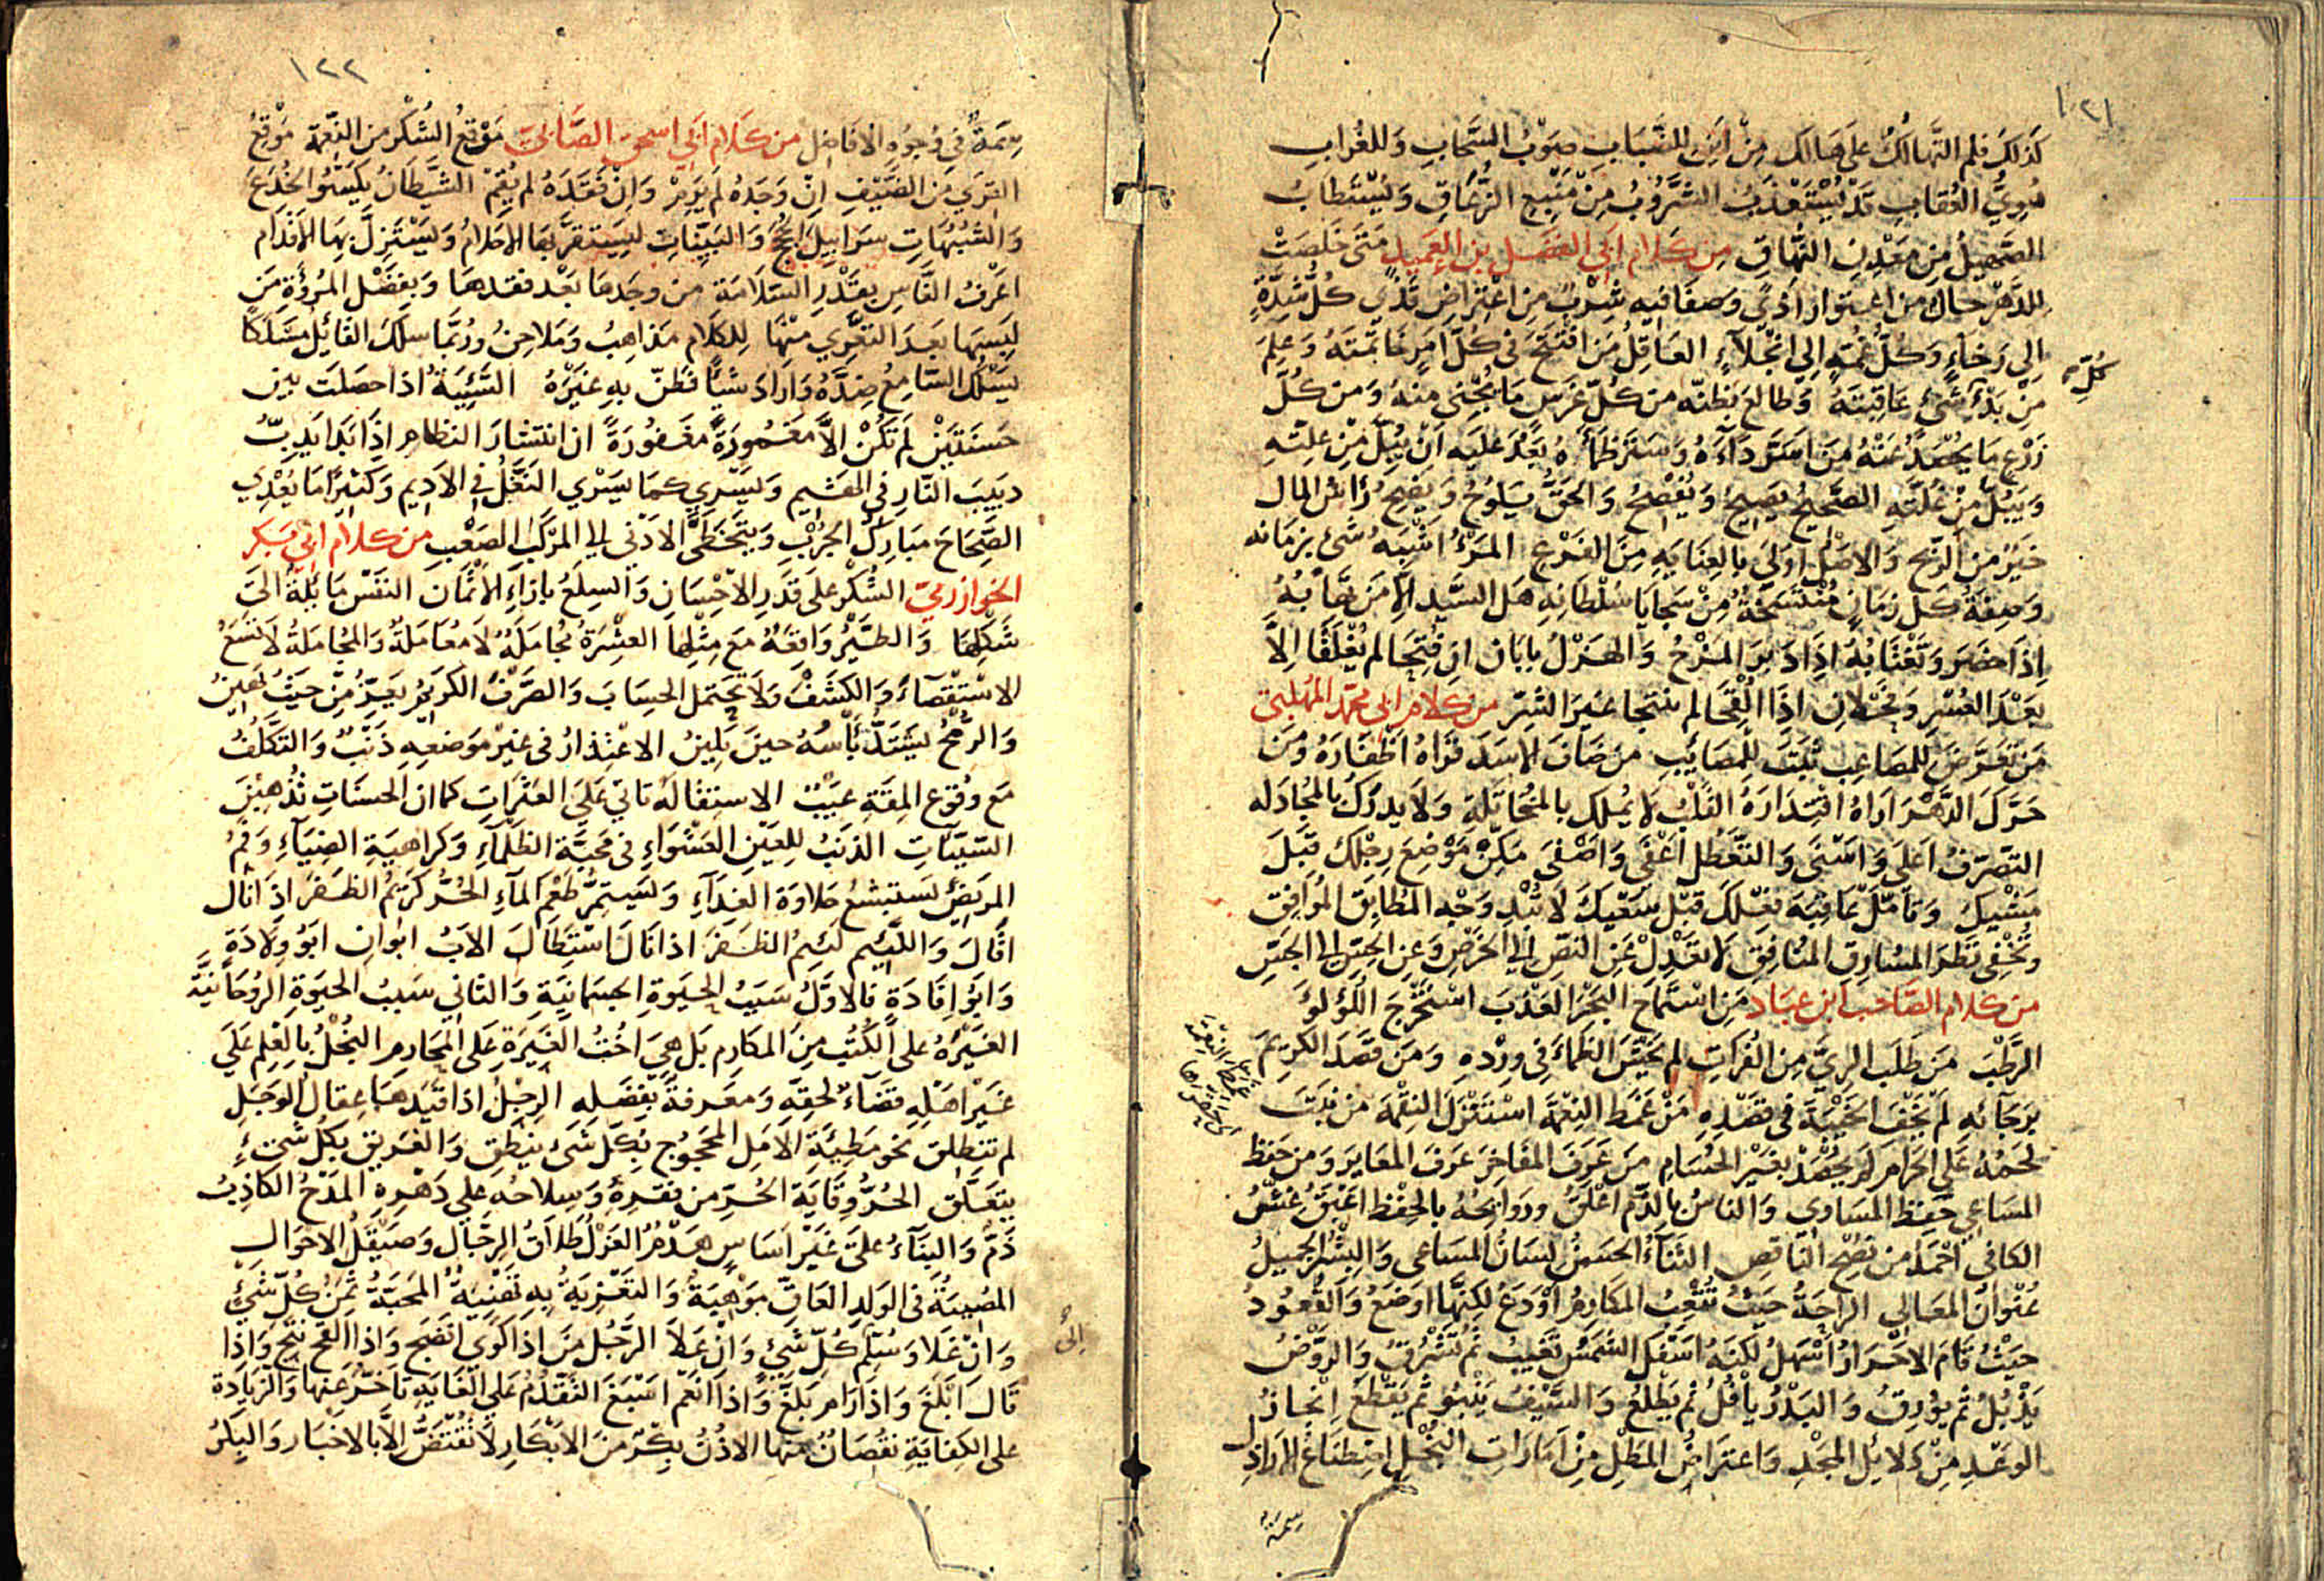 ١٢١
كَذلكَ فلم التَّهالُكُ على هَالك مِنْ اَيْن للضَّبَابِ صَوْبُ السَّحَابِ وَللغُرابِ
هُوِيُّ العُقَابِ قَدْ يُسْتَعْذَبُ الشَّرُوبُ مِنْ مَنْبَعِ الزُّعَاقِ وَيُسْتَطَابُ
الصَّهِيلُ مِن مَعْدِنِ النُّهَاقِ مِن كَلام ابي الفضل بن العميد مَتَى خَلصَتْ
للدَّهْر حَالٌ من اعتوار اذىً وصفَا فيه شِرْبٌ مِن اعْتِرَاضِ قَذًى كُلُّ شِدَّةٍ
اِلى رَخاءٍ وَكُلُّ غُمَّةٍ اِلي انْجِلآءٍ العَاقِلُ مَن افْتَتَحَ في كُلِّ امرٍ خَاتمتَهُ وَعَلِمَ
كُلّ
مِنْ بَدْءِ شيْءٍ عَاقِبَتهُ وَطالعَ بظنّه من كُلّ غَرسٍ مَا يُجْنى منهُ وَمن كُلّ
زَرْع مَا يُحْصَدُ عَنْهُ مَن اسَرَّ دَآءَهُ وَسَتَرَ ظَمَأَهُ بَعُدَ عَليهِ اَنْ يُبِلَّ مِنْ عِلّتهِ
وَيَبُلَّ مِنْ غُلَّتهِ الصَّحيحُ يَصِيحُ وَيُفْصِحُ وَالحَقُّ يَلوُحُ وَيَضِحُ رَاسُ المال
خَيْرٌ من الرِّبح وَالاصْلُ اوْلَى بالعِنَايةِ مِنَ الفَرْعِ المَرْءُ اشْبَهُ شَىْءٍ بزمَانه
وَصِفَةُ كل زمَانٍ مُنْتَسَخَةٌ مِنْ سَجَايَا سُلْطَانِهِ هَل السَّيّد الّا مَن تهَابُهُ
اِذَا حَضَرَ وَتَغْتَابُهُ اِذَا دَبرَ المَزْحُ وَالهَزْلُ بابَان اِن فُتِحَا لم يُغْلَقَا اِلاَّ
بَعْدَ العُسْر وَفَحْلان اِذَا اَلْقَحَا لم ينتجا غيرَ الشرّ من كلام ابي محمّد المهلّبي
مَن تعَرَّضَ للمصاعِب ثبَتَ للمصَايبِ من ضَافَ الاسدَ قرَاهُ اَظْفَارَهُ وَمَن
حَرَّكَ الدَّهْرَ ارَاهُ اقتدَارَهُ القلْبُ لا يُملك بالمُخَاتَلةِ وَلا يدْرَكُ بالمُجَادَله
التّصَرّفُ اعلىَ وَاسْنَى وَالتّعَطّل اعْفَى وَاصْفَى مَكِنْ مَوْضِعَ رِجْلكَ قبْلَ
مشْيكَ وَتامّلْ عَاقِبَةَ فعْلكَ قبْلَ سَعْيكَ لا تُبْدِ وَجْه المُطَابِق المُوَافِق
وتُخْفى نظَرَ المسَارِقِ المنَافِقِ لا تعْدِلْ عَنِ النصّ اِلى الخَرْصِ وَعن الحِسّ اِلى الحَدْسِ
من كلام الصَّاحب ابن عبَّاد مَنِ اسْتَمَاحَ البَحْرَ العَذْبَ اسْتَخْرَجَ اللّؤلؤَ
الرَّطْبَ مَن طَلَب الرِيَّ مِن الفُرَاتِ لم يَخْشَ الظَمَأَ فِي وِرْدهِ وَمَن قَصَدَ الكريمَ
برَجَائه لم يَخَفِ الخَيْبَةَ في قَصْدِهِ مَنْ غَمَطَ النِعْمَةَ اسْتَنْزَلَ النِقْمَةَ من نبَتَ
لحَمْهُ عَلى الحَرامِ لم يُحْصَدْ بغيْر الحُسَامِ مَن عَرَفَ المفَاخِرَ عَرَفَ المعَايرَ وَمن حَفظَ
المسَاعِي حَفِظَ المسَاوي وَالناسُ بالذّم اعْلَقُ وَرَوَايحُهُ بالحِفْظ اعْبَقُ غشّ
الكافي احْمَدُ من نصْح النَّاقِصِ الثنَآءُ الحسَنُ لسَانُ المسَاعى وَالبِشْرُ الجميلُ
عُنْوانُ المعَالي الرّاحَةُ حَيْثُ تُتْعِبُ المكَارِمُ اَوْدَعُ لكنّها اوضَعُ وَالقُعُودُ
حيْثُ قَامَ الاحْرَارُ اَسْهَلُ لكنّهُ اسْفَل الشّمْسُ تغيبُ ثم تُشْرِقُ وَالروْضُ
يَذْبُلُ ثم يُورِقُ وَالبَدْرُ يَاْفُلُ ثم يَطْلعُ وَالسَّيْفُ ينْبُو ثم يَقْطَع اِنجَازُ
الوَعْدِ مِنْ دَلايُل المجْدِ وَاعتراضُ المَطْلِ مِنْ اَمَارَاتِ البُخْلِ اصْطِنَاعُ الارَاذِل
سِمَة
١٢٢
سِمَةٌ فِي وُجُوهِ الافَاضِل من كَلام ابي اسحق الصَّابىّ مَوْقعُ الشُكْر من النِّعمة مَوْقعُ
القِرَي مَن الضَّيْفِ اِنْ وَجَدهُ لم يَرِمْ وَانْ فَقَدَهُ لم يُقِمْ الشَّيطانُ يكسُوا الخُدَعَ
وَالشُبُهَاتِ سَرَابِيلَ الحُجَجِ وَالبَيّنَاتِ ليَستفزّ بهَا الاحلامُ وَيَسْتزِلَّ بِهَا الاقدَام
اعْرَفُ النَّاس بقَدْرِ السَّلامَة من وجَدهَا بعْد فقدهَا وَبفضْل المرُؤةِ مَن
لَبسَهَا بَعدَ التعَرِّي منْهَا لِلكلام مَذاهِبُ وَمَلاحِنُ ورُبَّما سلَكَ القَائلُ مسْلكًا
يَسْلكُ السّامعُ ضِدَّهُ وَارَادَ شيئًا فظَنّ به غيْرَهُ السَّيِّئَةُ اذا حصَلَت بين
حَسَنَتَيْن لم تكُنْ الاَّ مَغمُورَةً مَغفُورَةً ان انتشارَ النظام اِذَا بَدا يدِبُّ
دبيبَ النَّار في الهَشيم وَيَسْري كما يسْري النَغَلُ فِي الاَديم وَكثيرًا مَا يُعْدِي
الصِّحَاحَ مَبَارِكُ الجُرْبِ وَيَتَخطَّى الادْنى اِلى المرْكَب الصَعْبِ من كلام ابي بكر
الخوارزميّ الشُكْر عَلى قدَرِ الاحْسَانِ وَالسِلَعُ بازآءِ الاَثْمَانِ النفسُ مَائلَةٌ الىَ
شكْلِهَا وَالطَّيْرُ وَاقِعَةٌ مَعَ مِثْلِها العِشْرَةُ مُجامَلَةٌ لا مُعَامَلَةٌ وَالمُجَامَلةُ لا تسَعُ
الاسْتِقْصآءَ وَالكشْفَ وَلا تحتَمِل الحِسَابَ وَالصَّرْفَ الكريمُ يَعِزّ مِنْ حيثُ يَهينُ
وَالرُّمْحُ يَشتدُّ بَأْسُهُ حِينَ يَلِينُ الاعْتِذارُ في غير مَوْضعِهِ ذَنْبٌ وَالتكلّفُ
مَع وُقوع المِقَةِ عَيْبٌ الاستقالة تاتي عَلىَ العَثَراتِ كما ان الحسنَاتِ تُذْهِبْنَ
السّيّئاتِ الذنبُ للعَيْنِ العَشْوَاءِ في مَحَبَّة الظَلْمآءِ وَكراهيةِ الضِيَآءِ وَفمُ
المريضُ يَستبشعُ حَلاوَة الغِذآءِ وَيَستمِرُّ طَعْمَ المآءِ الحُرُّ كرَيمُ الظَفَرَ اِذَا نَال
اقَالَ وَاللّئيم لَئيمُ الظَفَرَ اذا نَالَ اسْتطَالَ الاَبُ ابَوانِ ابَوُ وِلادَةٍ
وَابَوُ اِفَادَةٍ فالاوّلُ سَبَبُ الحيَوةِ الجسمانيّةِ وَالثاني سَببُ الحيَوةِ الرُوحَانيّة
الغيْرَةُ على الكُتُب من المكارِم بَل هِيَ اُخْتُ الغَيْرَةِ على المحارِم البُخلُ بالعِلْم على
غيْر اهْلِهِ قضَآءٌ لحقِهِ وَمَعرفةٌ بفضلِه الرِجْلُ اذا قيّدهَا عِقالُ الوَجَلِ
لم تنطلق نحو مَطِيَّةِ الاَمَل المحجُوجُ بكل شَىءٍ ينطق وَالغريق بكل شىءٍ
يتعَلَّق الحُرُّ وِقَايَة الحُرّ من فقرهِ وَسِلاحُه على دَهْرِهِ المَدْحُ الكاذِبُ
ذَمٌّ وَالبنَآءُ علَى غيْر اسَاسٍ هَدْمٌ العَزْلُ طَلاقُ الرِجَال وَصَيْقَلُ الاحْوَالِ
المصِيبَةُ في الوَلدِ العَاقِّ مَوْهِبَةٌ وَالتعْزيَةُ بهِ تَهْنِيَةٌ المحَبَّةُ ثمنُ كُلّ شىءٍ
الى
وَانْ غَلا وَسُلّمُ كُلّ شىءٍ وَانْ عَلاَ الرَّجُل مَن اذَا كوَى انضَجَ وَاذا القح نتج وَاذا
قَالَ ابْلَغَ وَاذا رَامَ بَلغَ وَاذا انعَمَ اسْبَغَ التقدُّمُ على الغَايَةِ تَاخّرٌ عَنها وَالزيَادة
على الكفَايَةِ نقْصَانٌ منها الاذُنُ بِكْرٌ منَ الاَبْكَارِ لا تُفْتَضُّ الاَّ بالاخبَار وَالبِكْرُ